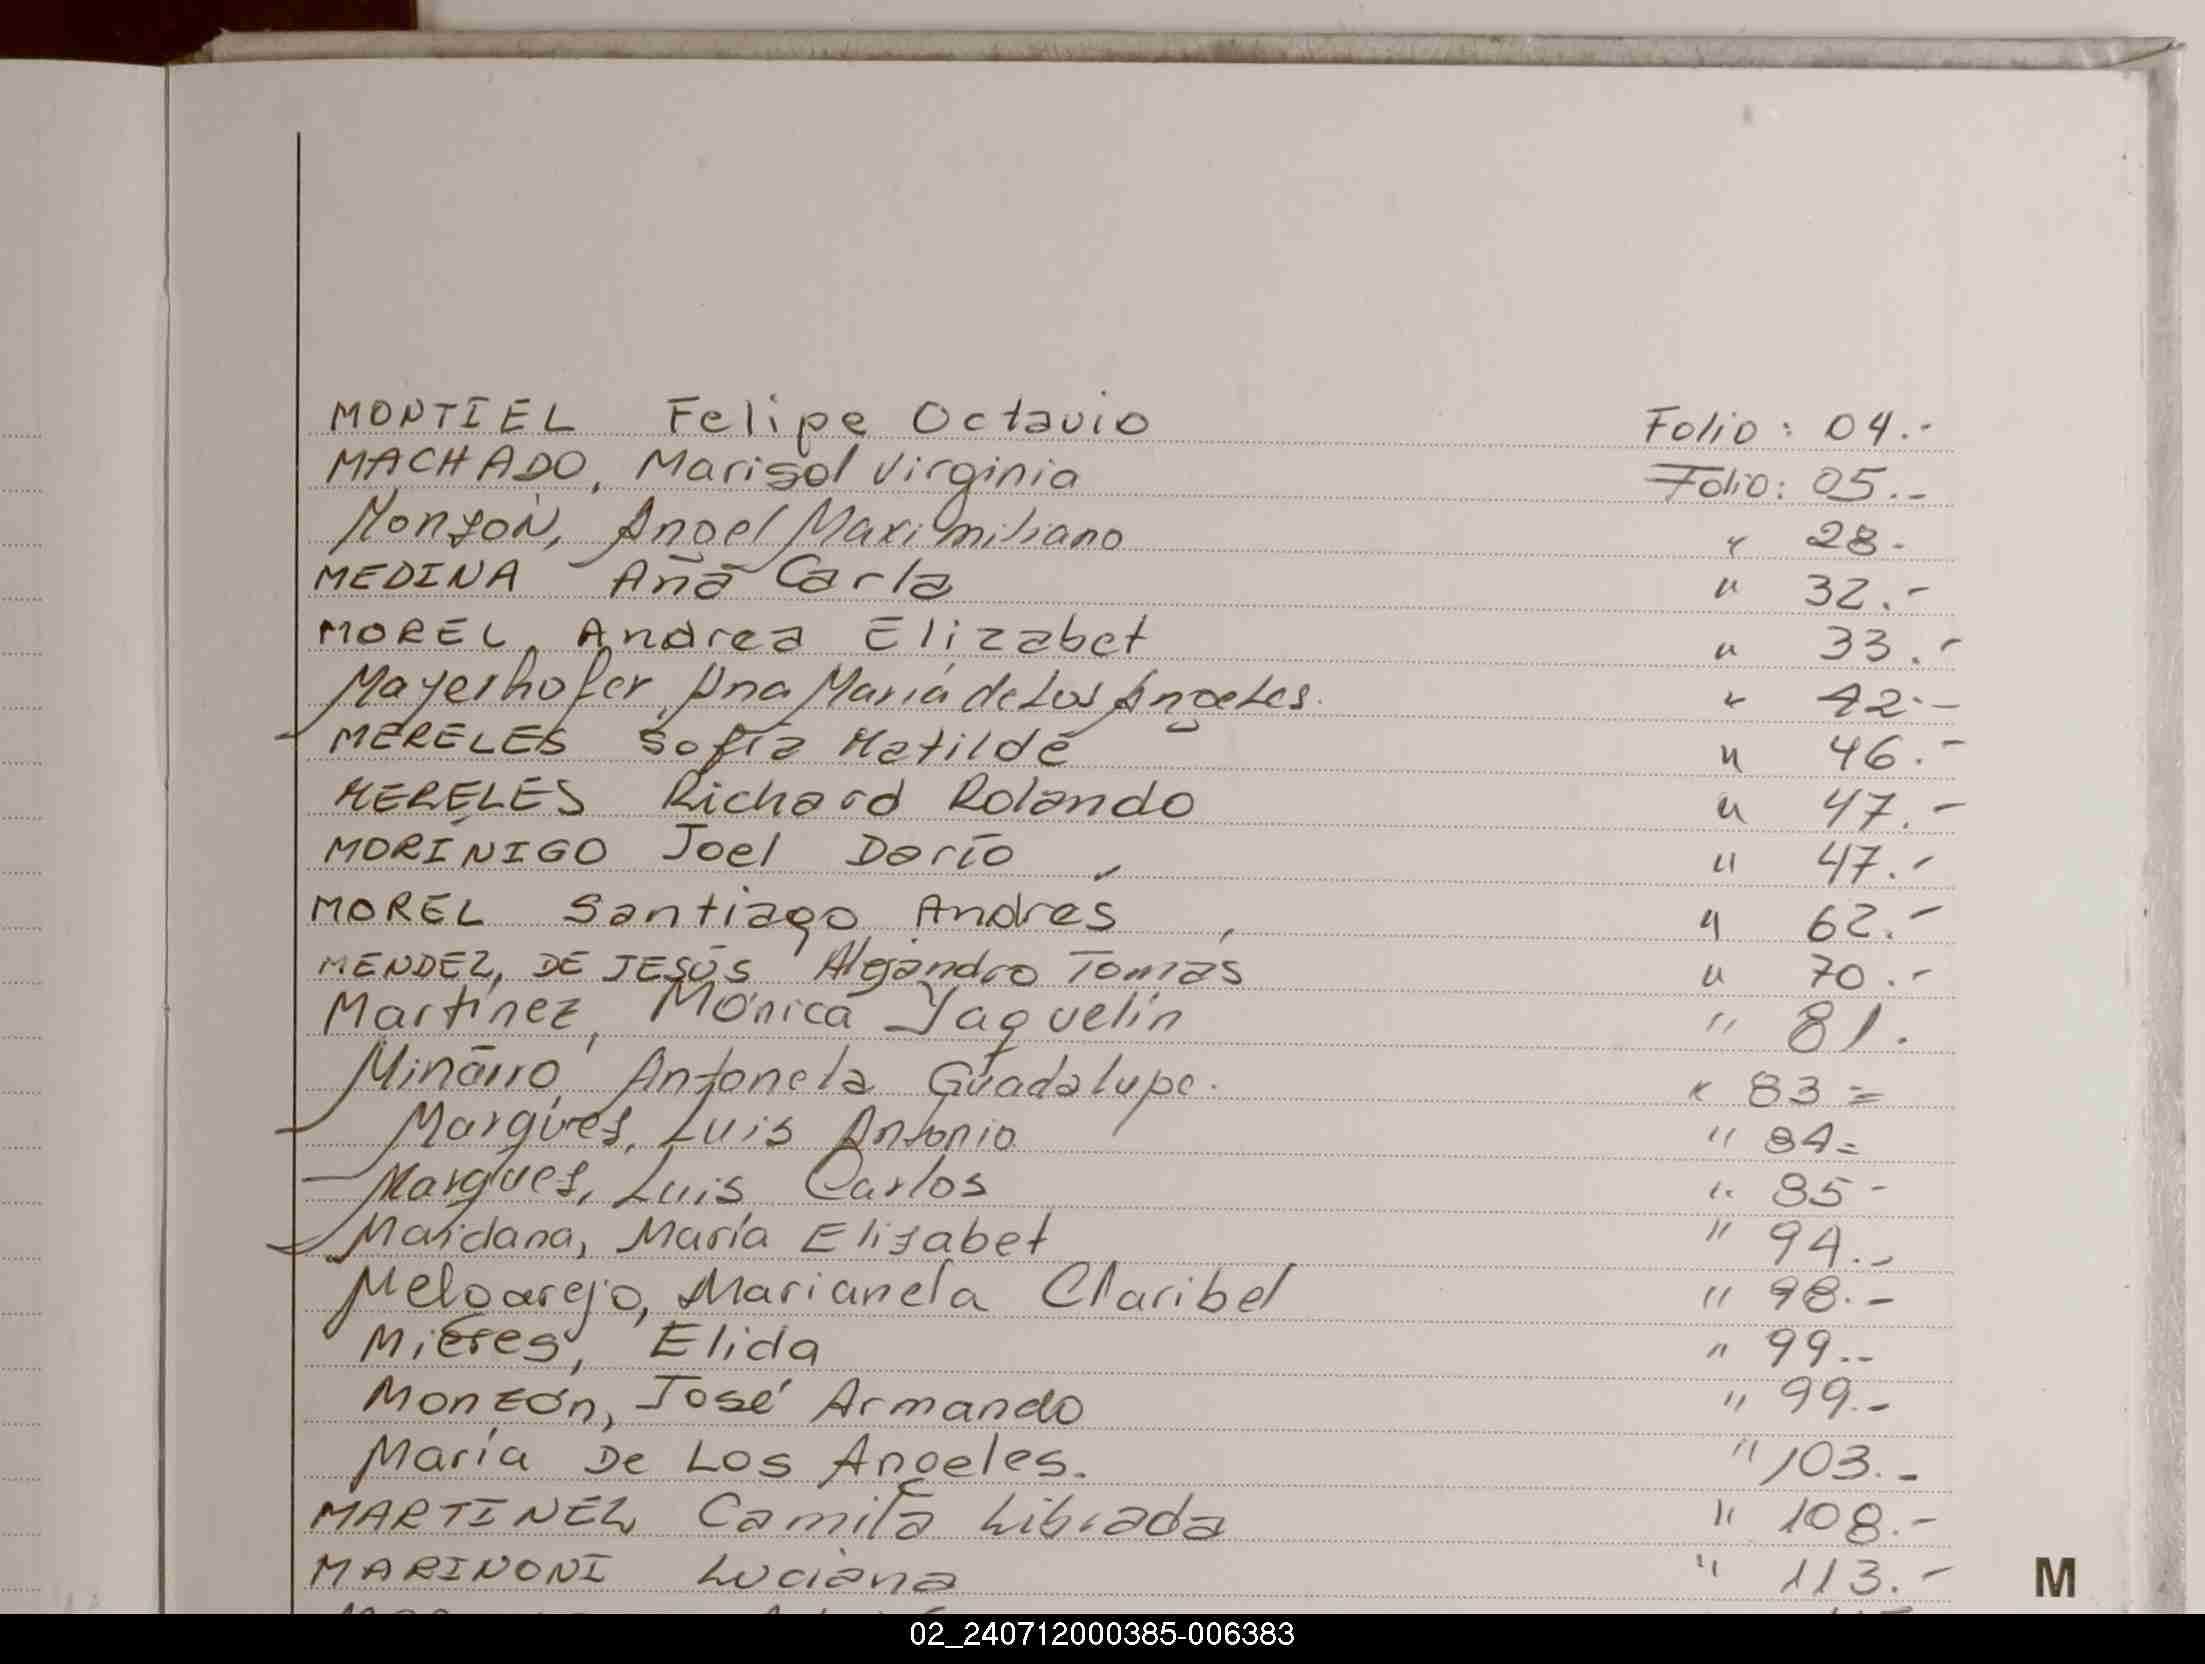 MONTIEL Felipe Octavio Folio: 04.-
MACHADO, Marisol Virginia Folio: 05.-
Monzón, Angel Maximiliano " 28.
MEDINA Ana Carla " 32.-
MOREL, Andrea Elizabet " 33.-
Mayerhofer, Ana María de Los Angeles. " 42.-
MERELES Sofía Matilde " 46.-
MERELES Richard Rolando " 47.-
MORÍNIGO Joel Darío " 47.-
MOREL Santiago Andrés " 62.-
MENDEZ, DE JESÚS Alejandro Tomás " 70.-
Martínez, Mónica Yaquelin " 81.
Miñarro, Antonela Guadalupe. " 83=
Marques, Luis Antonio " 84=
Marques, Luis Carlos " 85-
Maidana, María Elisabet " 94.-
Melgarejo, Marianela Claribel " 98.-
Mieres, Elida " 99.-
Monzón, José Armando " 99.-
María De Los Angeles. " 103.-
MARTINEZ Camila Librada " 108.-
MARINONI Luciana " 113.-
M
02_240712000385-006383